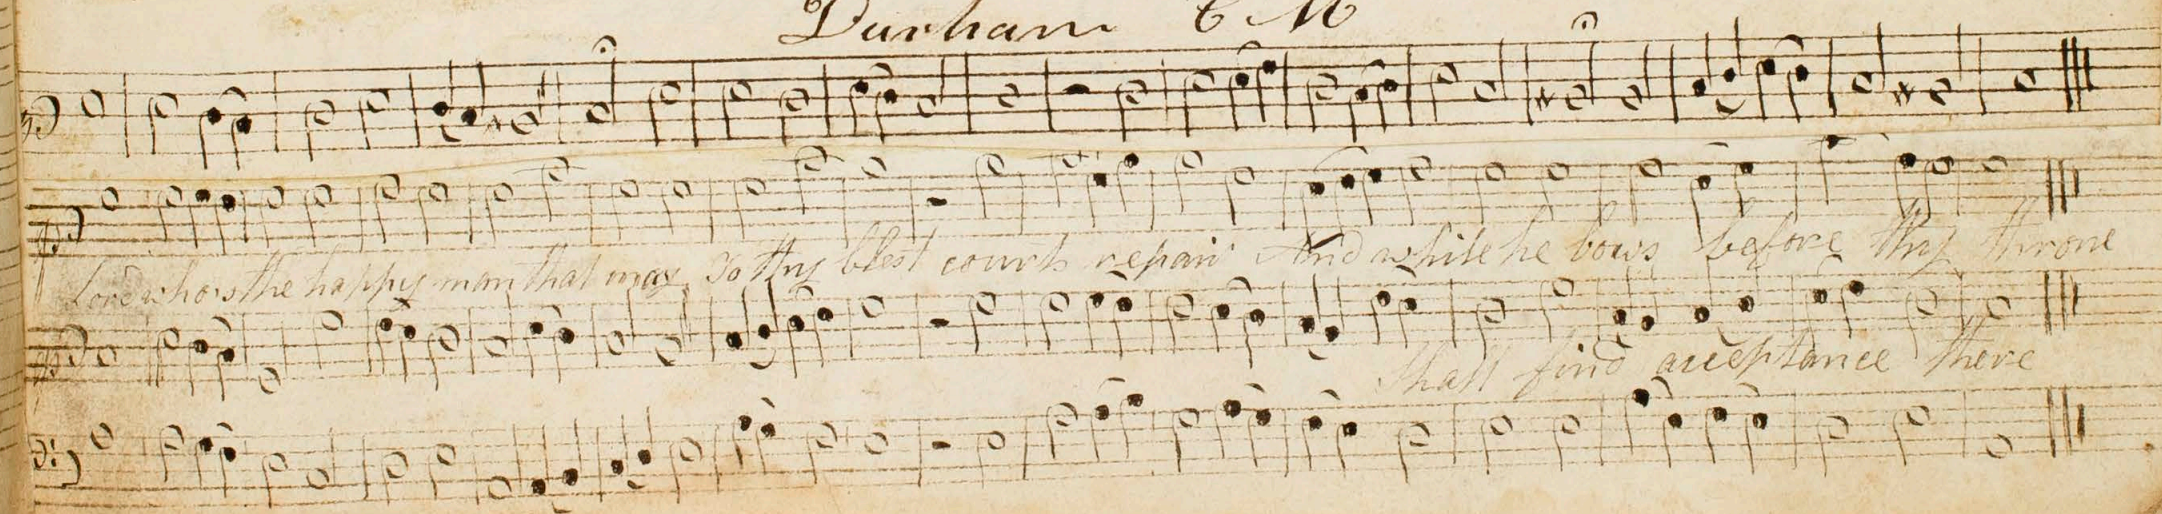 Durham C M
Lord who's the happy man that may To thy blest courts repair And while he bows before thy throne
Shall find acceptance there